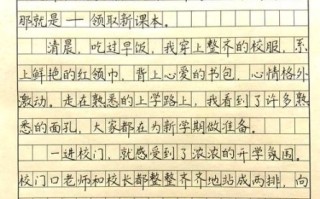 那就是——领取新课本。
清晨，吃过早饭，我穿上整齐的校服，系
上鲜艳的红领巾，背上心爱的书包，心情格外
激动。走在熟悉的上学路上，我看到了许多熟
悉的面孔，大家都在为新学期做准备。
一进校门，就感受到了浓浓的开学氛围。
校门口老师和校长都整整齐齐地站成两排，向